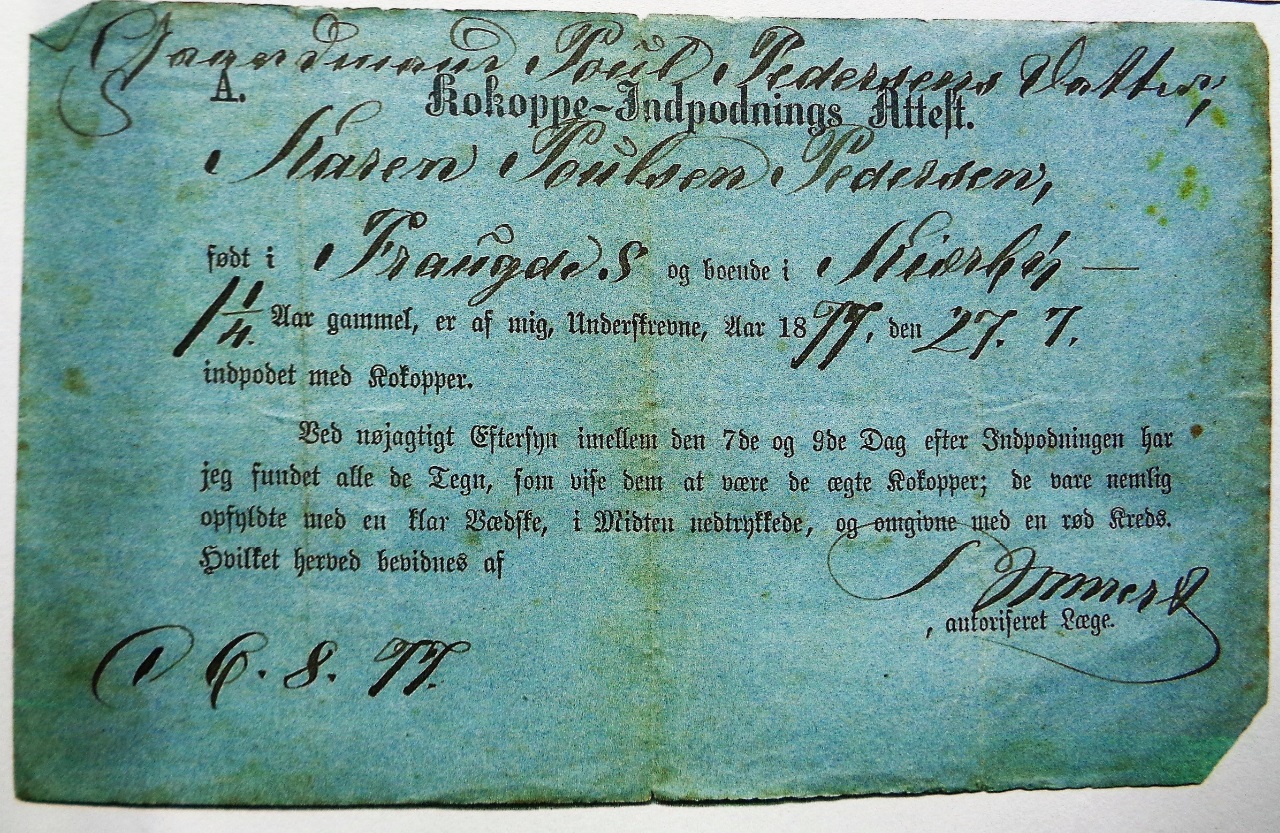 Gaardmand Poul Pedersens Datter,
A. Kokoppe-Indpodnings Attest.
Karen Poulsen Pedersen,
født i Fraugde S og boende i Kierbÿ —
1 1/4. Aar gammel, er af mig, Underskrevne, Aar 1877. den 27. 7.
indpodet med Kokopper.
Ved nøjagtigt Eftersyn imellem den 7de og 9de Dag efter Indpodningen har
jeg fundet alle de Tegn, som vise dem at være de ægte Kokopper; de vare nemlig
opfyldte med en klar Vædske, i Midten nedtrykkede, og omgivne med en rød Kreds.
Hvilket herved bevidnes af
, autoriseret Læge.
D 6. 8. 77.